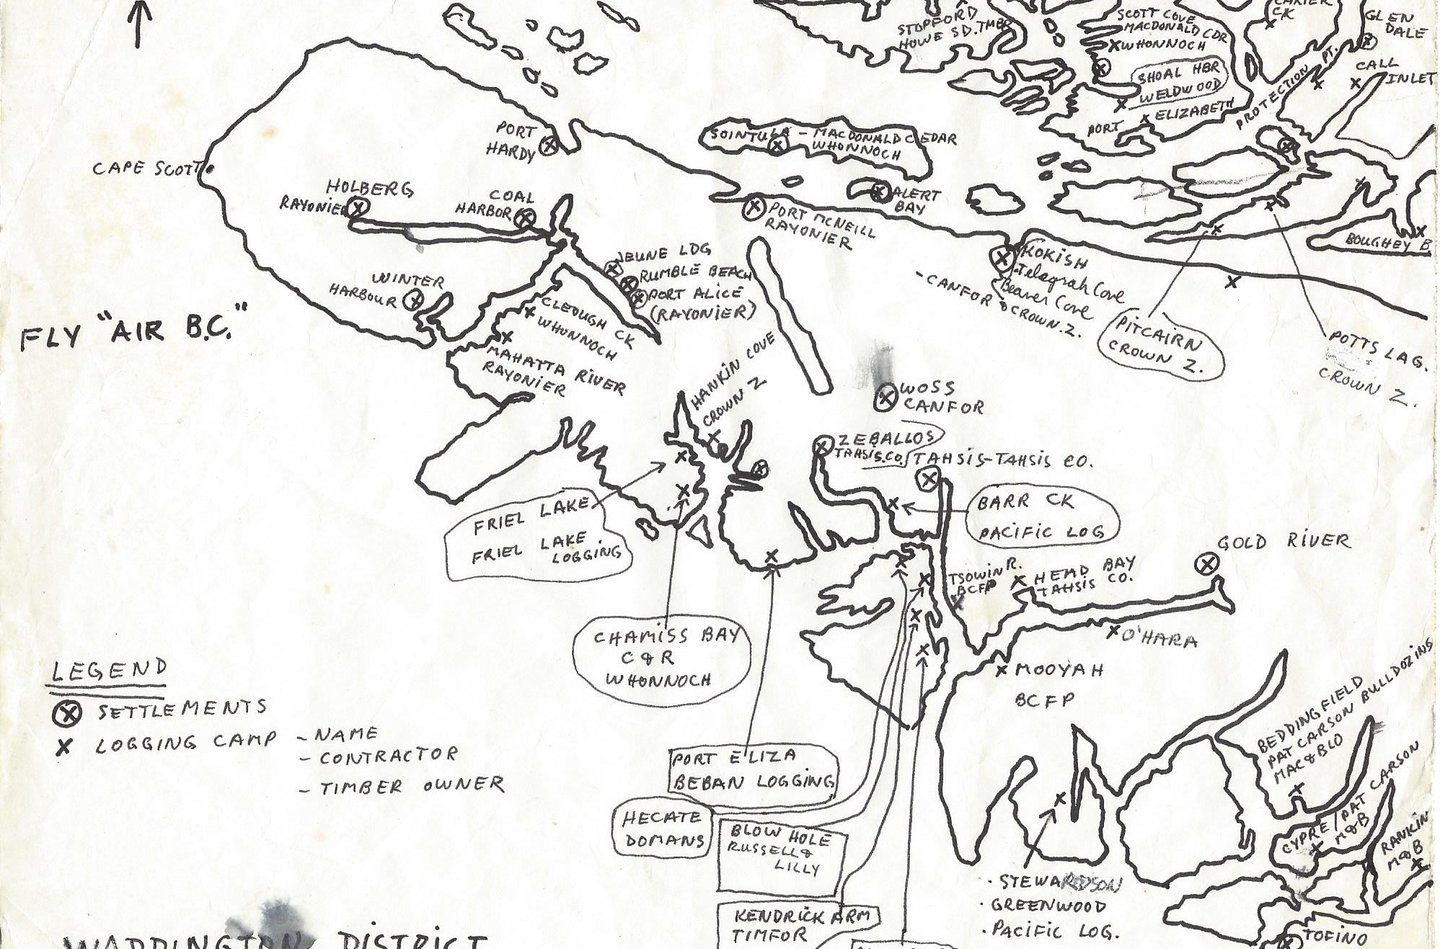 STOPFORD
HOWE SD. TMBR
SCOTT COVE
MACDONALD CDR
WHONNOCH
SHOAL HBR
WELDWOOD
PORT ELIZABETH
CK
GLEN
DALE
CALL
INLET
PROTECTION PT.
PORT
HARDY
SOINTULA - MACDONALD CEDAR
WHONNOCH
CAPE SCOTT
HOLBERG
RAYONIER
COAL
HARBOR
ALERT
BAY
PORT MCNEILL
RAYONIER
BOUGHEY B
JEUNE LDG
RUMBLE BEACH
PORT ALICE
(RAYONIER)
KOKISH
Telegraph Cove
Beaver Cove
- CANFOR & CROWN Z.
WINTER
HARBOUR
CLEOUGH CK
WHONNOCH
PITCAIRN
CROWN Z.
POTTS LAG.
CROWN Z.
FLY "AIR B.C."
MAHATTA RIVER
RAYONIER
HANKIN COVE
CROWN Z
WOSS
CANFOR
ZEBALLOS
TAHSIS CO.
TAHSIS-TAHSIS CO.
FRIEL LAKE
FRIEL LAKE
LOGGING
BARR CK
PACIFIC LOG
GOLD RIVER
TSOWIN R.
BCFP
HEAD BAY
TAHSIS CO.
O'HARA
CHAMISS BAY
C & R
WHONNOCH
MOOYAH
BCFP
LEGEND
SETTLEMENTS
X LOGGING CAMP - NAME
- CONTRACTOR
- TIMBER OWNER
BEDDINGFIELD
PAT CARSON BULLDOZING
MAC & BLO
PORT ELIZA
BEBAN LOGGING
HECATE
DOMANS
BLOW HOLE
RUSSELL &
LILLY
CYPRE/PAT CARSON
M&B
RANKIN
M&B
KENDRICK ARM
TIMFOR
· STEWARDSON
· GREENWOOD
· PACIFIC LOG.
TOFINO
WADDINGTON DISTRICT